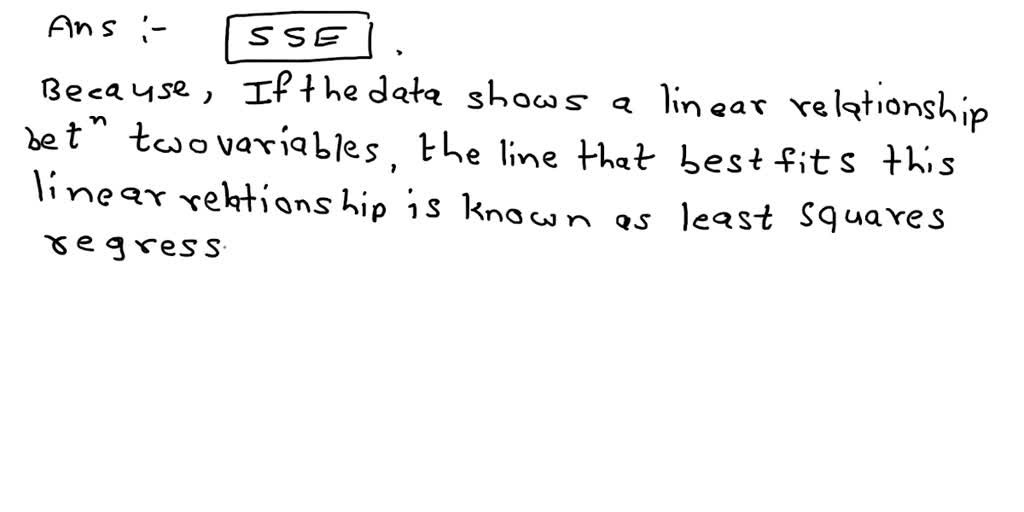 Ans :- SSE .
Because, If the data shows a linear relationship
betⁿ two variables, the line that best fits this
linear reltionship is known as least squares
regress